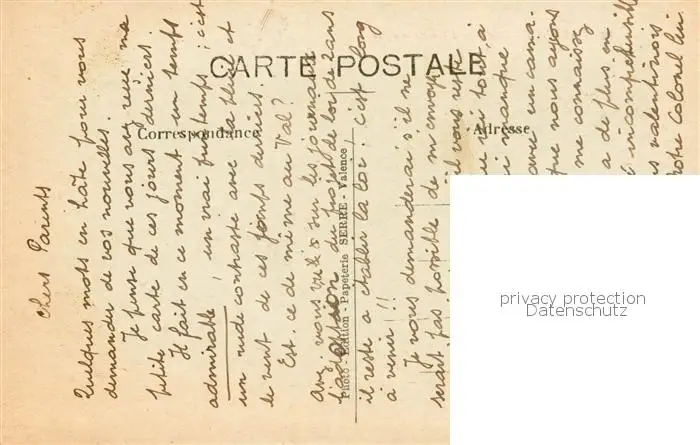 CARTE POSTALE
Correspondance
Adresse
Photo - Edition - Papeterie SERRE - Valence
Chers Parents
Quelques mots en hâte pour vous
demander de vos nouvelles.
Je pense que vous au reçue ma
petite carte de ces jours derniers.
Il fait en ce moment un temps
admirable, un vrai printemps; c'est
un rude contraste avec la pluie et
le vent de ces jours derniers.
Est-ce de même au Val?
Avez-vous vu sur les journaux
l'adoption du projet de loi de 2 ans
il reste a établir la loi: c'est long
a venir!!
Je vous demanderai s'il ne
serait pas possible de m'envoyer
s'il vous reste
qui
manque
avec un cama-
que nous ayons
me connaissez
a de plus en
incompréhensible
valentinois
Notre Colonel lui-
privacy protection
Datenschutz